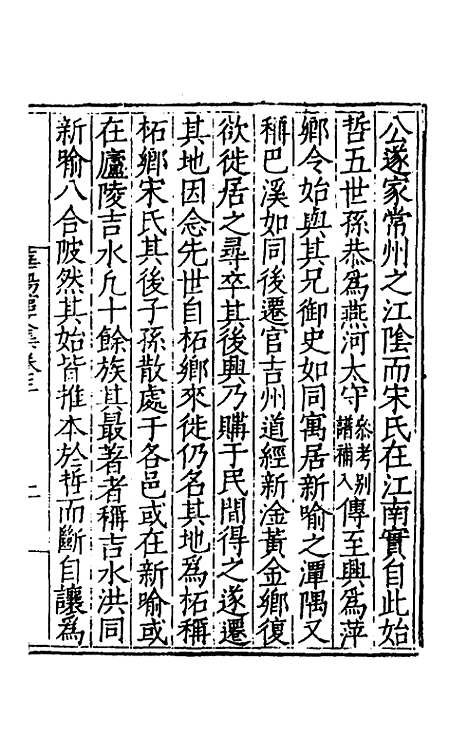 公遂家常州之江陰而宋氏在江南實自此始
哲五世孫恭爲燕河太守叅考別譜補入傳至興爲萍
鄉令始與其兄御史如同寓居新喻之潭隅又
稱巴溪如同後遷官吉州道經新淦黃金鄉復
欲徙居之尋卒其後興乃購于民間得之遂遷
其地因念先世自柘鄉來徙仍名其地爲柘稱
柘鄉宋氏其後子孫散處于各邑或在新喻或
在廬陵吉水凢十餘族其最著者稱吉水洪同
新喻八合陂然其始皆推本於哲而斷自讓爲